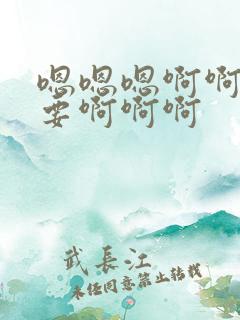 嗯嗯嗯啊啊
要啊啊啊
武長江
未经同意禁止转载